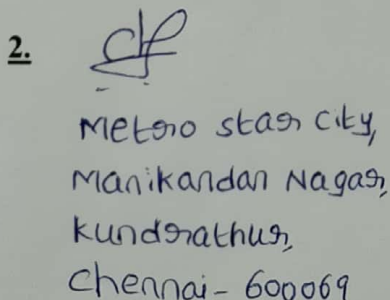 2.
Metro star City,
Manikandan Nagar,
Kundrathur,
Chennai - 600069